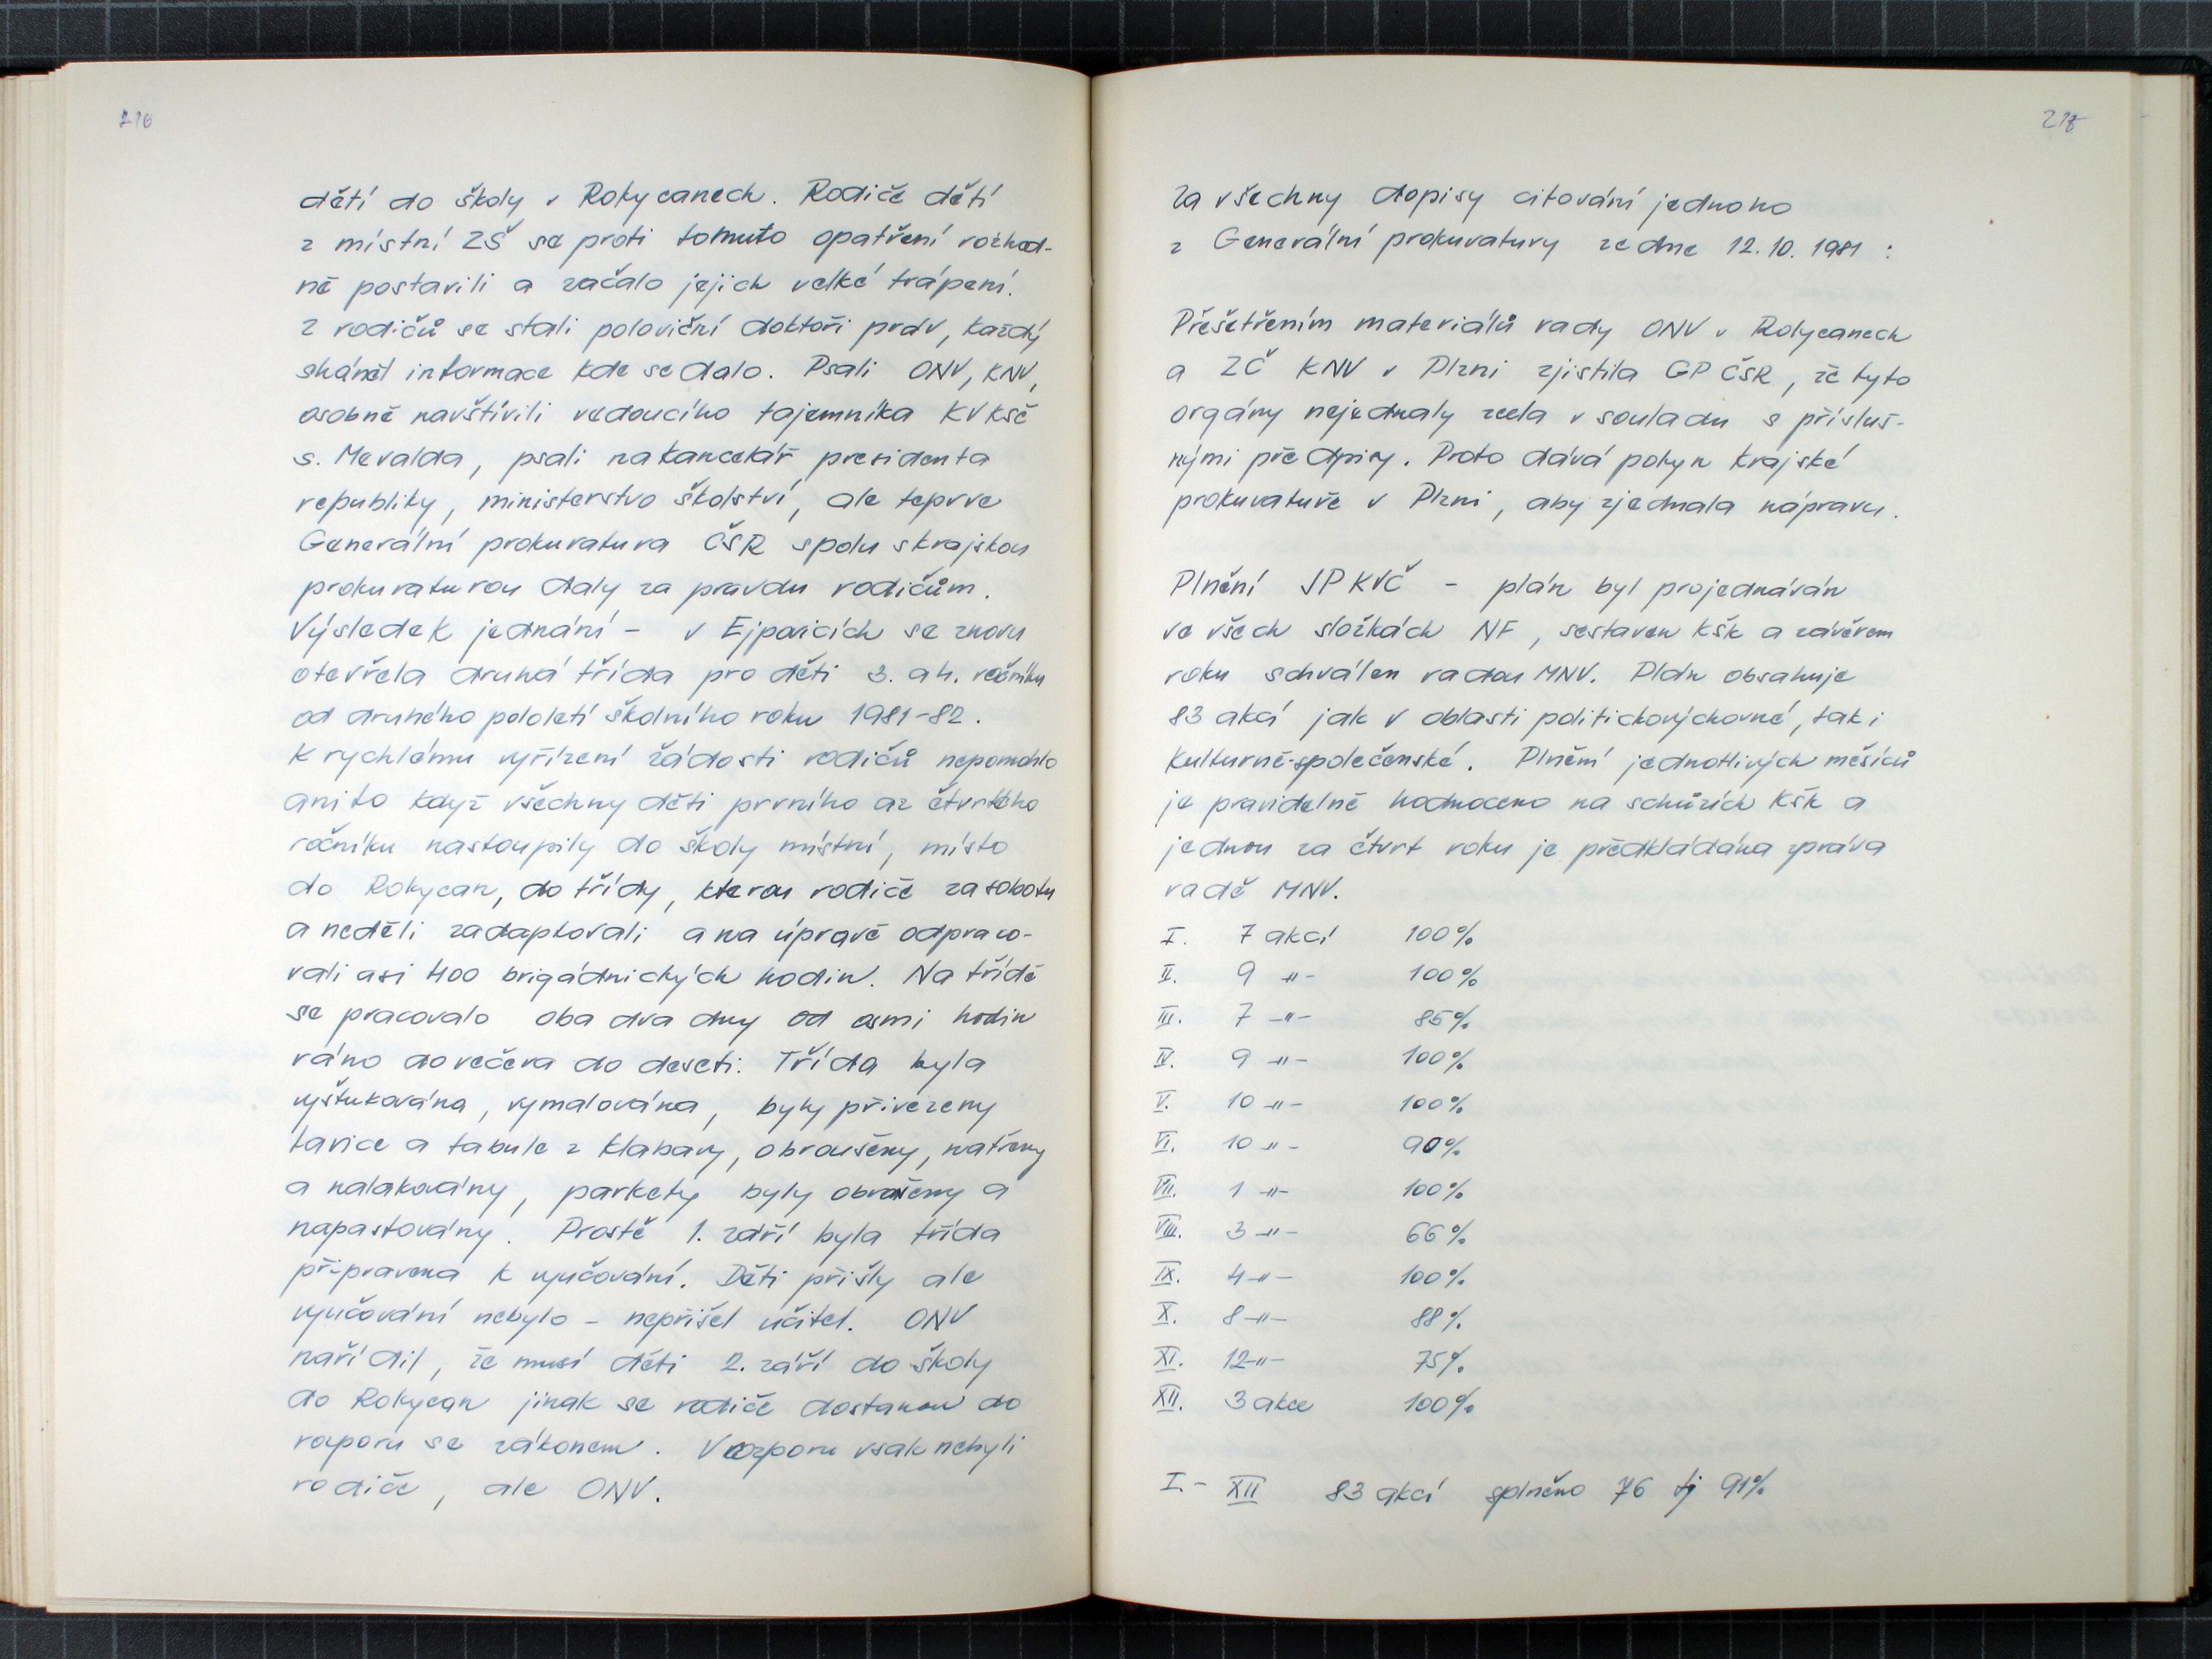 216
dětí do školy v Rokycanech. Rodiče dětí
z místní ZŠ se proti tomuto opatření rozhod-
ně postavili a začalo jejich velké trápení.
Z rodičů se stali poloviční doktoři práv, každý
sháněl informace kde se dalo. Psali ONV, KNV,
osobně navštívili vedoucího tajemníka KVKSČ
s. Mevalda, psali na kancelář presidenta
republiky, ministerstvo školství, ale teprve
Generální prokuratura ČSR spolu s krajskou
prokuraturou daly za pravdu rodičům.
Výsledek jednání - v Ejpovicích se znovu
otevřela druhá třída pro děti 3. a 4. ročníku
od druhého pololetí školního roku 1981-82.
K rychlému vyřízení žádosti rodičů nepomohlo
ani to když všechny děti prvního až čtvrtého
ročníku nastoupily do školy místní, místo
do Rokycan, do třídy, kterou rodiče za sobotu
a neděli zadaptovali a na úpravě odpraco-
vali asi 400 brigádnických hodin. Na třídě
se pracovalo oba dva dny od osmi hodin
ráno do večera do deseti. Třída byla
vyštukována, vymalována, byly přivezeny
lavice a tabule z Klabavy, obroušeny, natřeny
a nalakovány, parkety byly obroušeny a
napastovány. Prostě 1. září byla třída
připravena k vyučování. Děti přišly ale
vyučování nebylo - nepřišel učitel. ONV
nařídil, že musí děti 2. září do školy
do Rokycan jinak se rodiče dostanou do
rozporu se zákonem. V rozporu však nebyli
rodiče, ale ONV.
217
Za všechny dopisy citování jednoho
z Generální prokuratury ze dne 12.10.1981 :
Přešetřením materiálů rady ONV v Rokycanech
a ZČ KNV v Plzni zjistila GP ČSR, že tyto
orgány nejednaly zcela v souladu s přísluš-
nými předpisy. Proto dává pokyn Krajské
prokuratuře v Plzni, aby zjednala nápravu.
Plnění JPKVČ - plán byl projednáván
ve všech složkách NF, sestaven KŠK a závěrem
roku schválen radou MNV. Plán obsahuje
83 akcí jak v oblasti politickovýchovné, tak i
kulturně-společenské. Plnění jednotlivých měsíců
je pravidelně hodnoceno na schůzích KŠK a
jednou za čtvrt roku je předkládána zpráva
radě MNV.
I. 7 akcí 100%
II. 9 -"- 100%
III. 7 -"- 85%
IV. 9 -"- 100%
V. 10 -"- 100%
VI. 10 -"- 90%
VII. 1 -"- 100%
VIII. 3 -"- 66%
IX. 4 -"- 100%
X. 8 -"- 88%
XI. 12 -"- 75%
XII. 3 akce 100%
I. - XII 83 akcí splněno 76 tj 91%